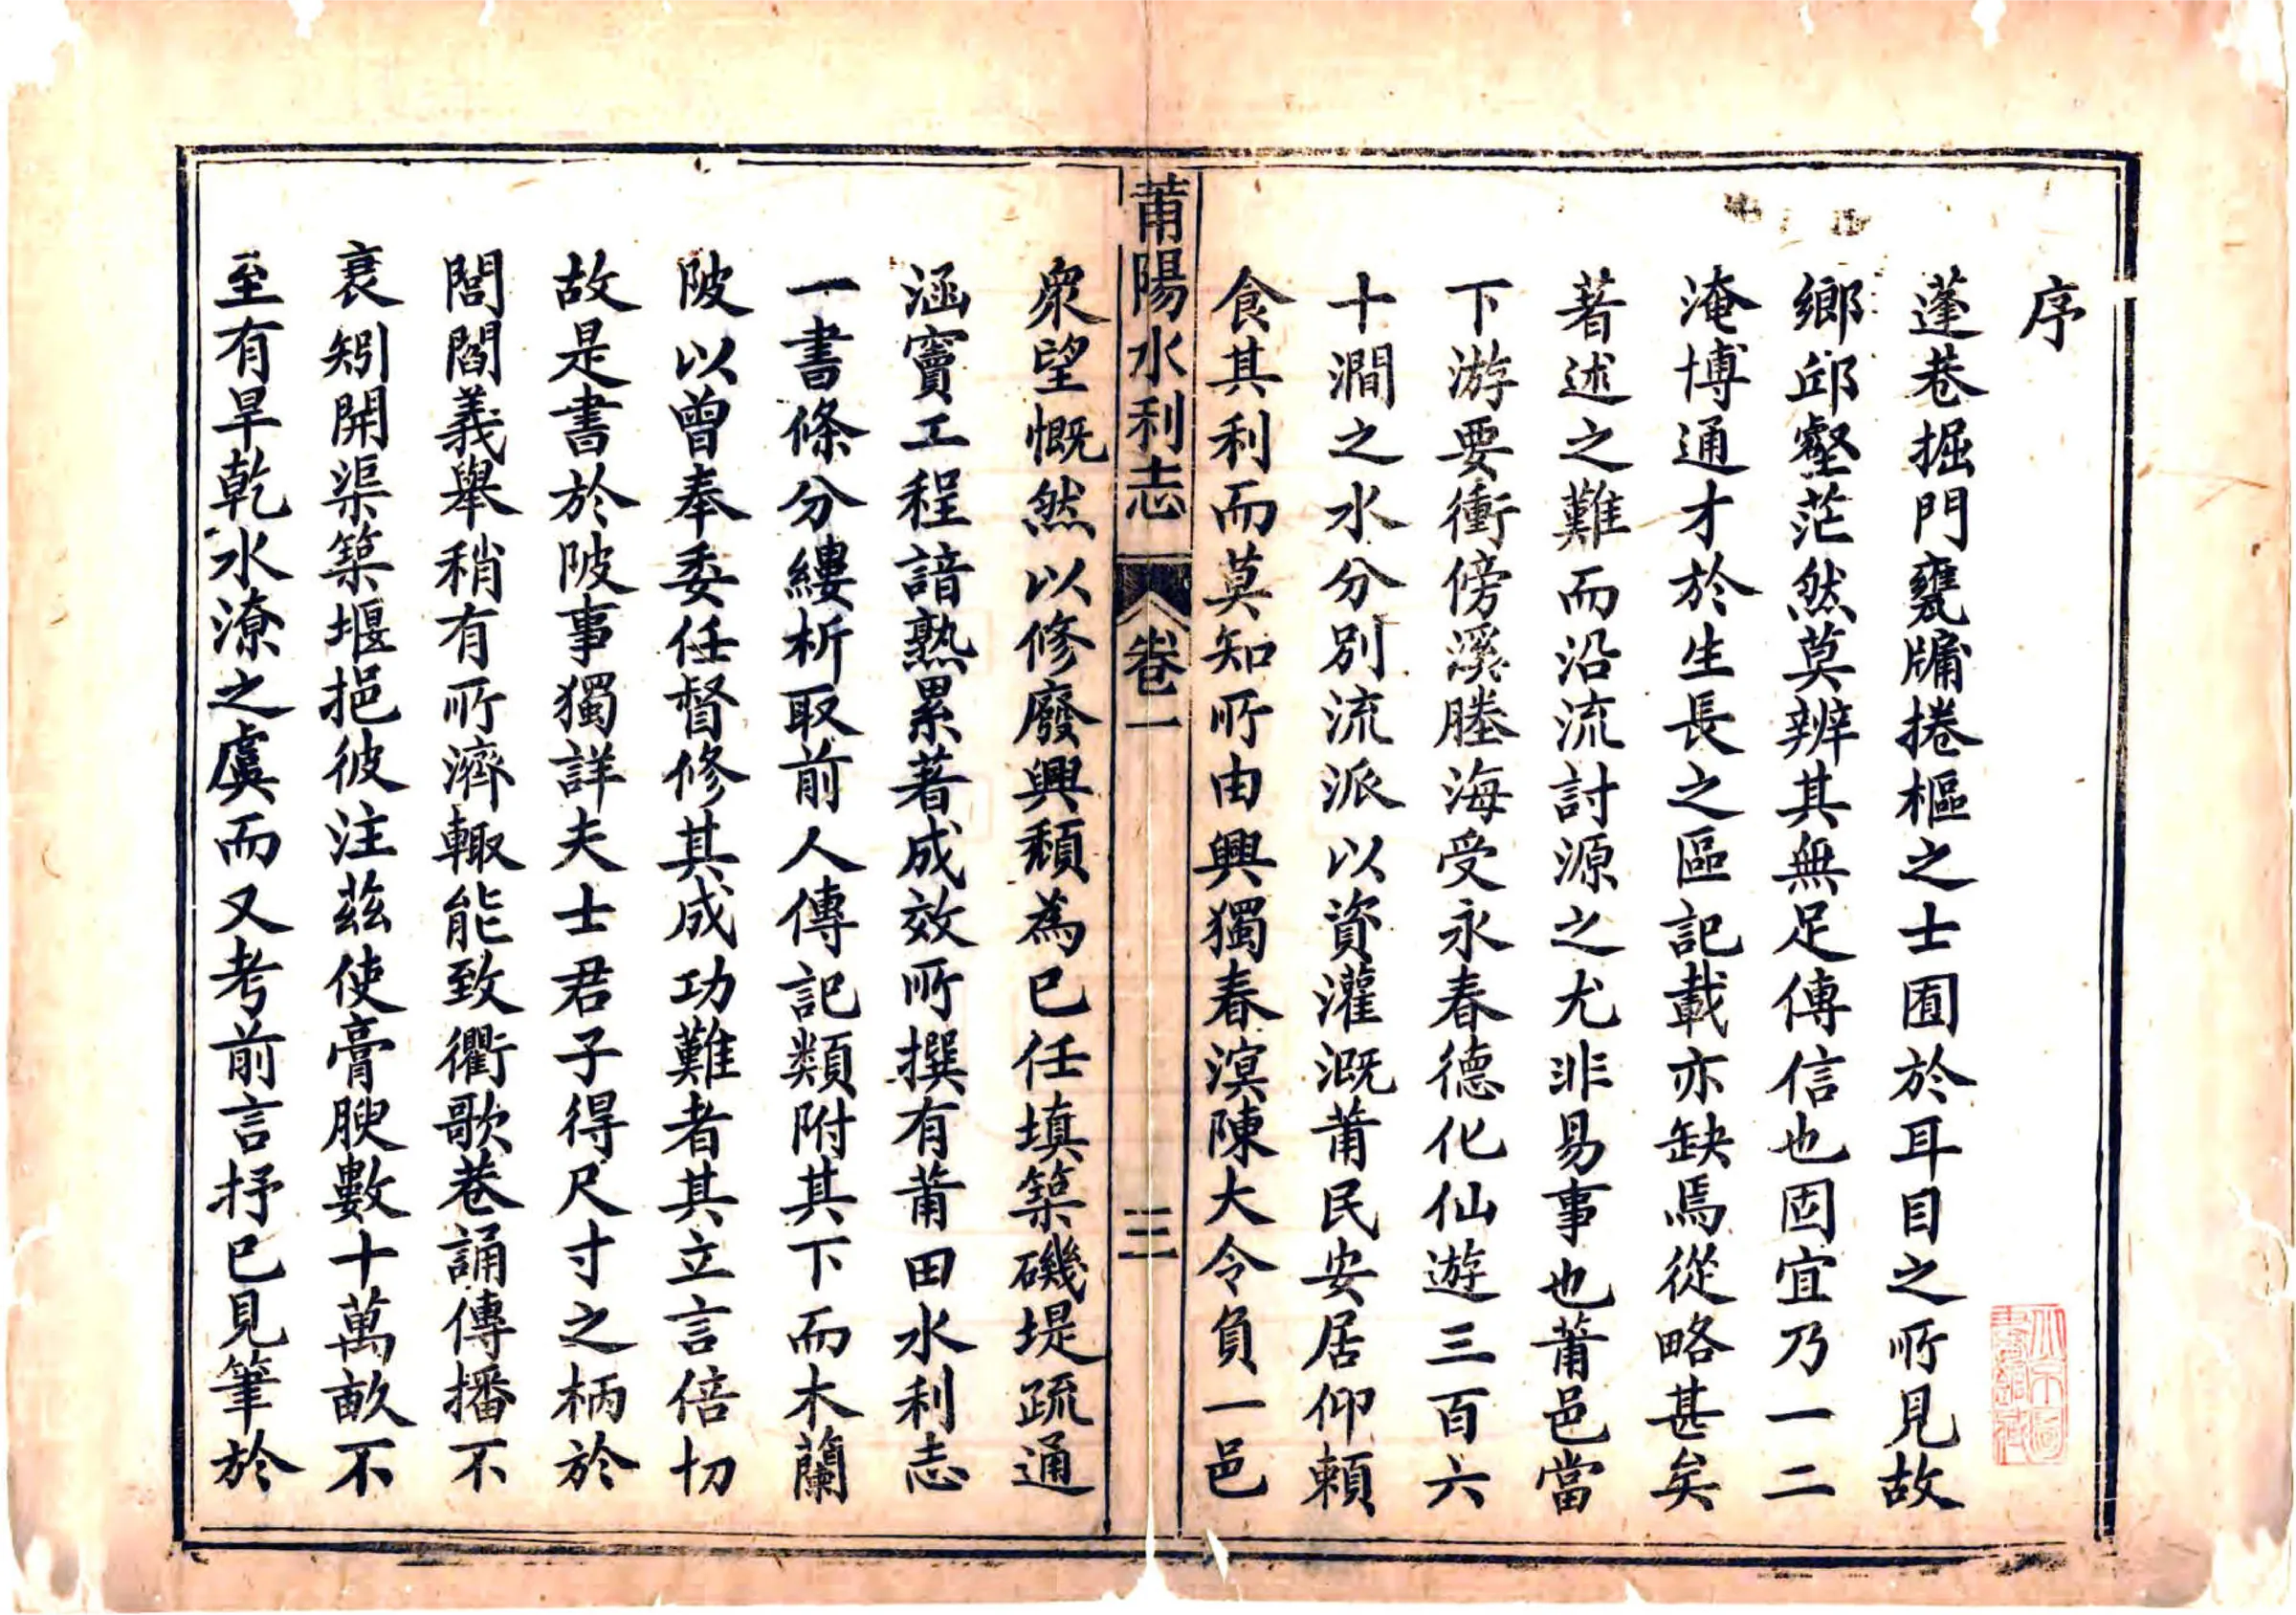 序
蓬巷掘門甕牖捲樞之士囿於耳目之所見故
鄉邱壑茫然莫辨其無足傳信也固宜乃一二
淹博通才於生長之區記載亦缺焉從略甚矣
著述之難而沿流討源之尤非易事也莆邑當
下游要衝傍溪塍海受永春德化仙遊三百六
十澗之水分別流派以資灌溉莆民安居仰賴
食其利而莫知所由興獨春溟陳大令負一邑
莆陽水利志 卷一 三
衆望慨然以修廢興頹為己任填築磯堤疏通
涵竇工程諳熟累著成效所撰有莆田水利志
一書條分縷析取前人傳記類附其下而木蘭
陂以曾奉委任督修其成功難者其立言倍切
故是書於陂事獨詳夫士君子得尺寸之柄於
閭閻義舉稍有所濟輙能致衢歌巷誦傳播不
衰矧開渠築堰挹彼注茲使膏腴數十萬畝不
至有旱乾水潦之虞而又考前言抒已見筆於